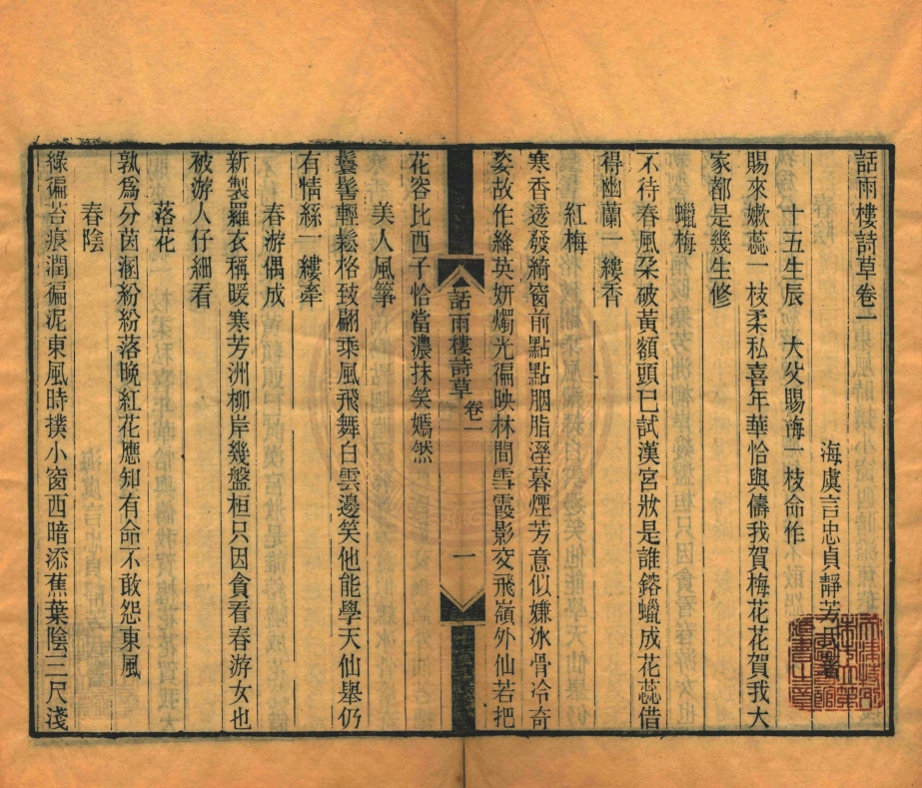 話雨樓詩草卷一
海虞言忠貞靜芳氏著
十五生辰　大父賜梅一枝命作
賜來嫩蕊一枝柔私喜年華恰與儔我賀梅花花賀我大
家都是幾生修
蠟梅
不待春風朶破黃額頭已試漢宮妝是誰鎔蠟成花蕊借
得幽蘭一縷香
紅梅
寒香透發綺窗前點點胭脂溼暮煙芳意似嫌冰骨冷奇
姿故作絳英妍燭光徧映林間雪霞影交飛嶺外仙若把
話雨樓詩草　卷一　一
花容比西子恰當濃抹笑嫣然
美人風箏
鬟髻輕鬆格致翩乘風飛舞白雲邊笑他能學天仙舉仍
有情絲一縷牽
春游偶成
新製羅衣稱暖寒芳洲柳岸幾盤桓只因貪看春游女也
被游人仔細看
落花
孰爲分茵溷紛紛落晚紅花應知有命不敢怨東風
春陰
綠徧苔痕潤徧泥東風時撲小窗西暗添蕉葉陰三尺淺